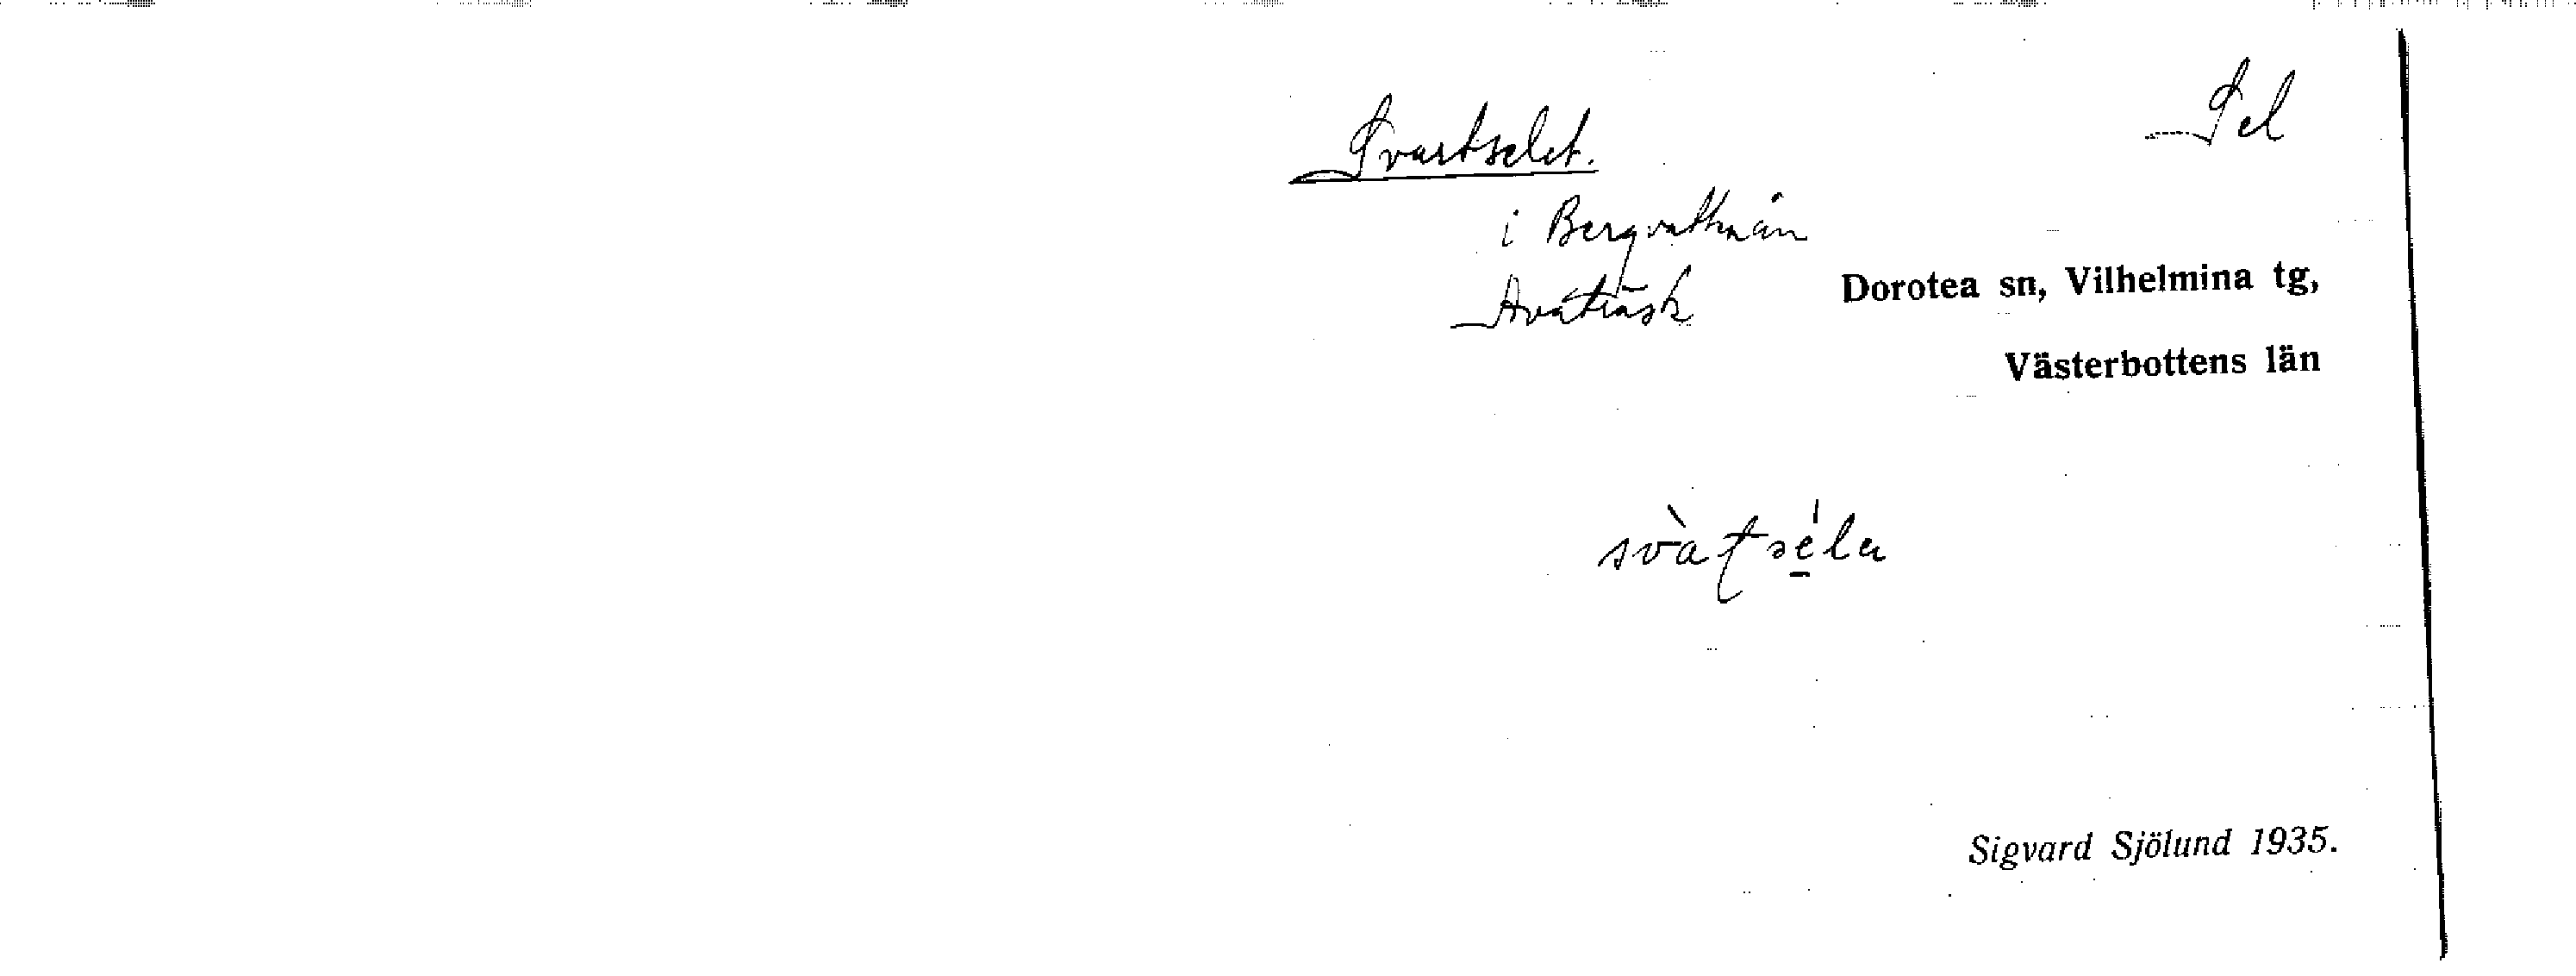 Svartselet.
Sel
i Bergvattnån
Avaträsk
Dorotea sn, Vilhelmina tg,
Västerbottens län
Sigvard Sjölund 1935.